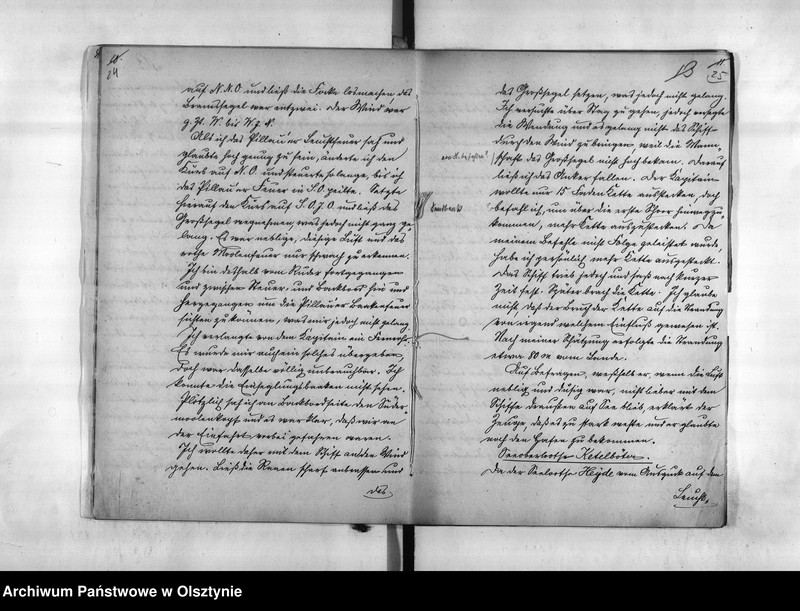 24
auf N. N. O. und ließ die Focke losmachen, das
Bramsegel war entzwei. Der Wind war
z. Zt. W. bis W. z. S.
Als ich das Pillauer Leuchtfeuer sah und
glaubte hoch genug zu sein, änderte ich den
Kurs auf N. O. und steuerte so lange, bis ich
das Pillauer Feuer in S. O. peilte. Setzte
hierauf den Kurs auf S. O. z. O. und ließ das
Großsegel wegnehmen, was jedoch nicht ganz ge-
lang. Es war neblige, diesige Luft und das
rothe Moolenfeuer nur schwach zu erkennen.
Ich bin deshalb vom Ruder fortgegangen
und zwischen Steuer- und Backbord hin und
hergegangen um die Pillauer Baakenfeuer
sichten zu können, was mir jedoch nicht gelang.
Ich verlangte von dem Kapitain ein Fernrohr.
Es wurde mir auch ein solches übergeben,
doch war dasselbe völlig unbrauchbar. Ich
konnte die Einseglungsbaaken nicht sehen.
Plötzlich sah ich an Backbordseite den Süder-
moolenkopf und es war klar, daß wir an
der Einfahrt vorbei gefahren waren.
Ich wollte daher mit dem Schiff an den Wind
gehen. Ließ die Raaen scharf anbrassen und
das
25
das Großsegel setzen, was jedoch nicht gelang.
Ich versuchte über Stag zu gehen, jedoch versagte
die Wendung und es gelang nicht das Schiff
durch den Wind zu bringen, weil die Mann-
schaft das Großsegel nicht hoch bekam. Darauf
ließ ich das Anker fallen. Der Kapitain
wollte nur 15 Faden Kette ausstecken, doch
befahl ich, um über die erste hinweg zu
kommen, mehr Kette auszustecken. Da
meinem Befehle nicht Folge geleistet wurde,
habe ich persönlich mehr Kette ausgesteckt.
Das Schiff trieb jedoch und saß nach kurzer
Zeit fest. Später brach die Kette. Ich glaube
nicht, daß der Bruch der Kette auf die Strandung
von irgend welchem Einfluß gewesen ist.
Nach meiner Schätzung erfolgte die Strandung
etwa 80 m vom Lande.
Auf Befragen, weshalb er, wenn die Luft
neblig und diesig war, nicht lieber mit dem
Schiffe draußen auf See blieb, erklärt der
Zeuge, daß es zu stark wehte und er glaubte
noch den Hafen zu bekommen.
Seeoberlootse Ketelböter.
Da der Seelootse Heyde vom Ausguck auf dem
Leucht-
Archiwum Państwowe w Olsztynie